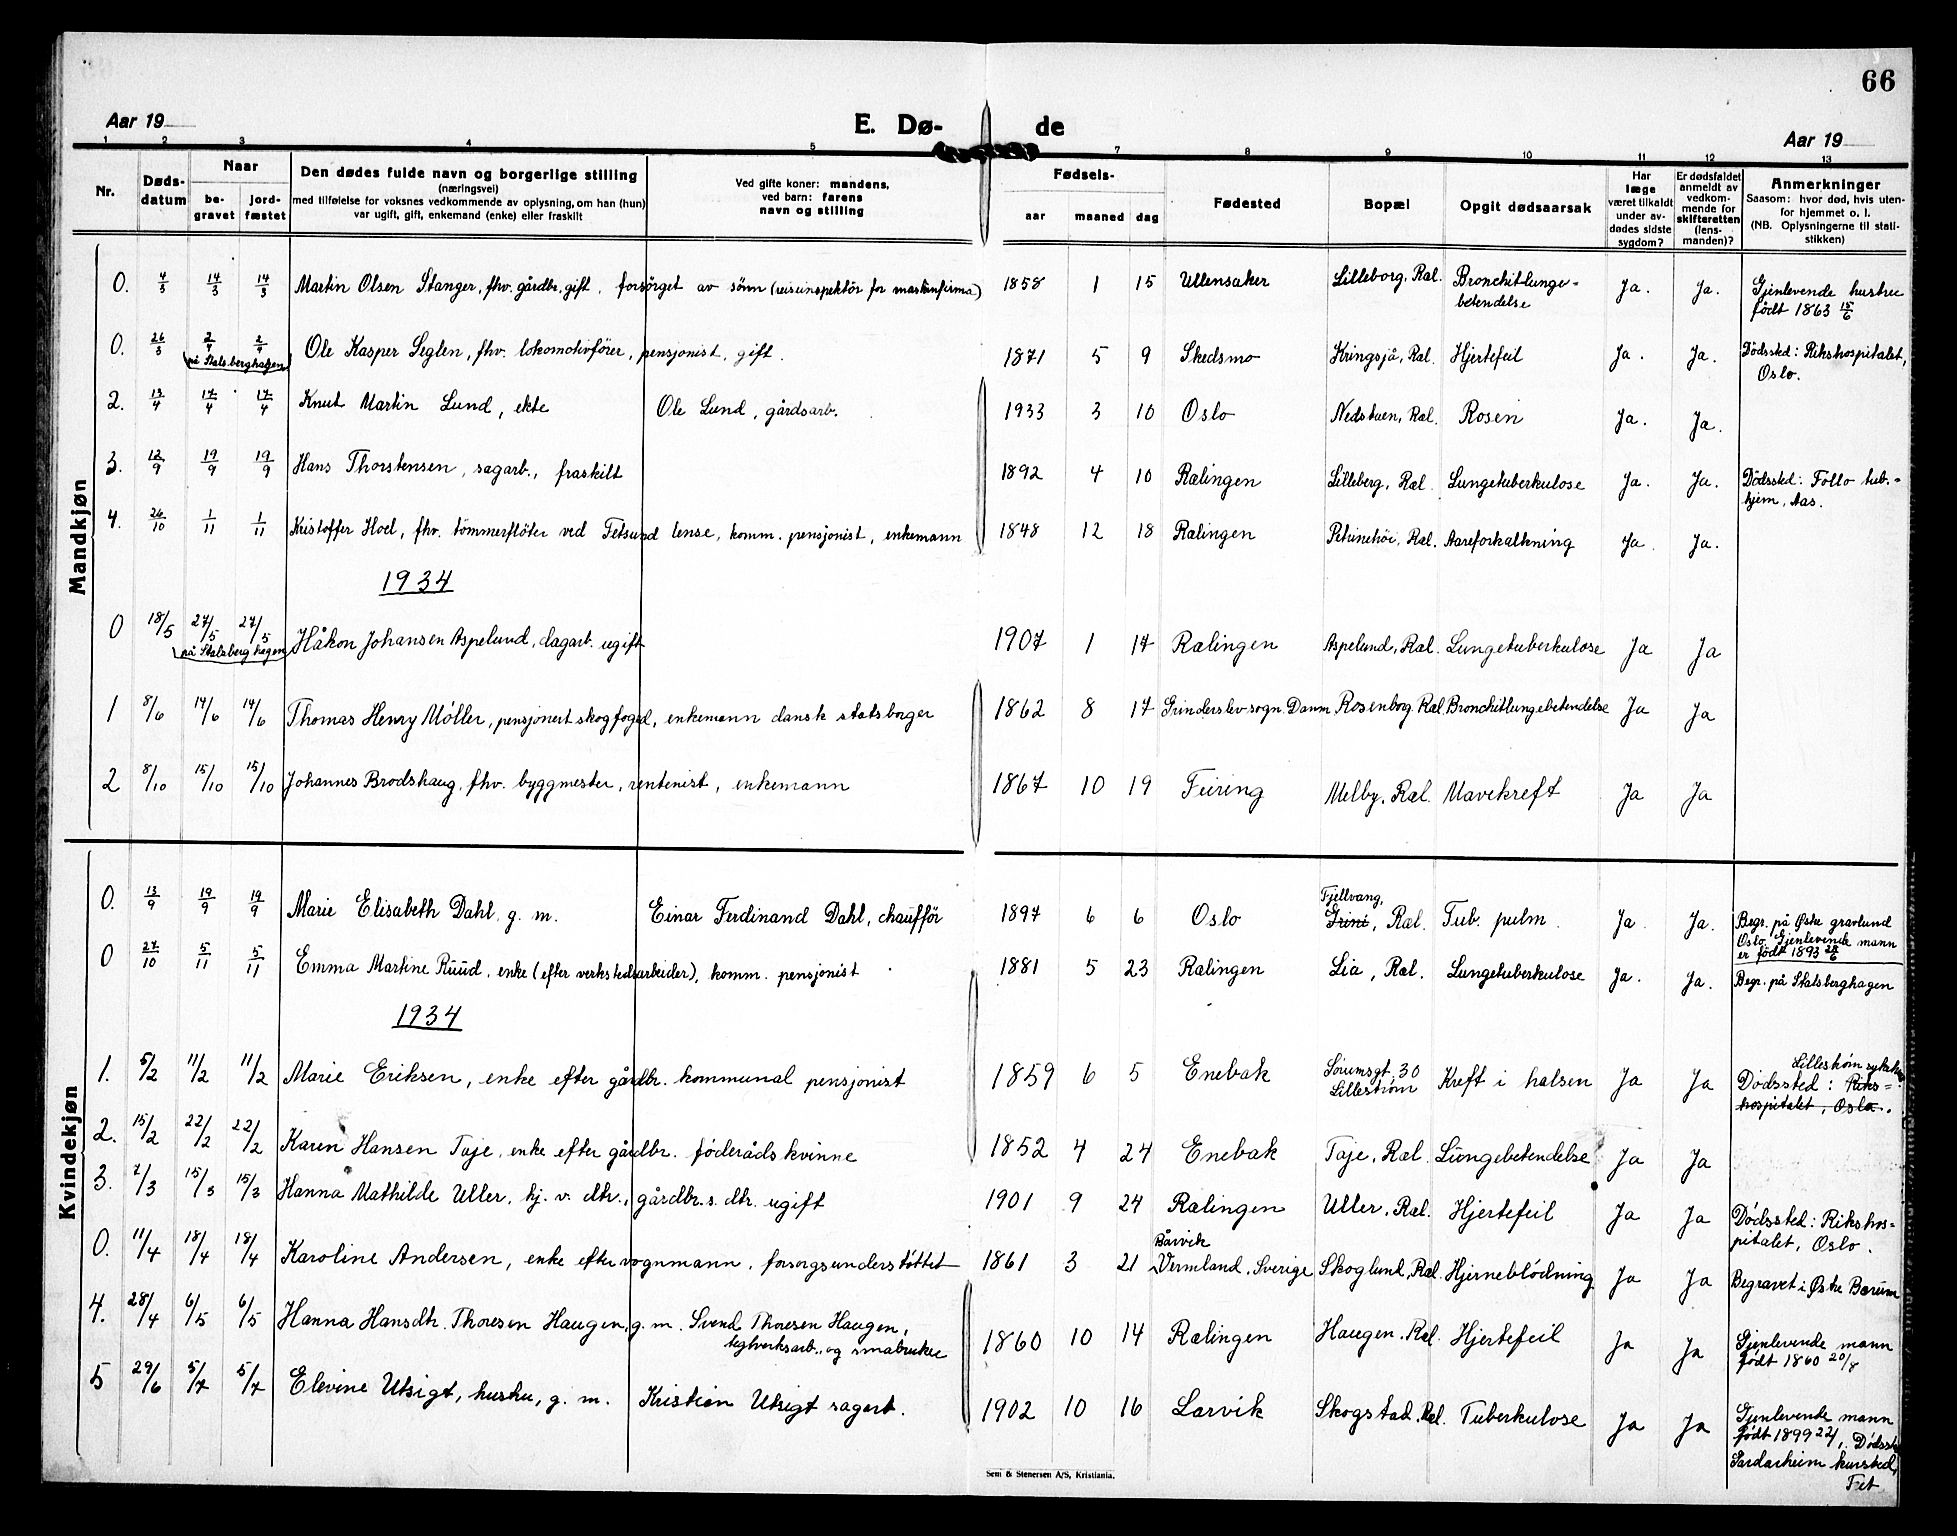 66
Aar 19
E. Dø- de
Aar 19
1 2 3 4 5 7 8 9 10 11 12 13
Nr. Døds-datum Naar be-gravet jord-fæstet Den dødes fulde navn og borgerlige stilling (næringsvei) med tilføielse for voksnes vedkommende av oplysning, om han (hun) var ugift, gift, enkemand (enke) eller fraskilt Ved gifte koner: mandens, ved barn: farens navn og stilling Fødsels- aar maaned dag Fødested Bopæl Opgit dødsaarsak Har læge været tilkaldt under av-dødes sidste sygdom? Er dødsfaldet anmeldt av vedkom-mende for skifteretten (lens-manden)? Anmerkninger Saasom: hvor død, hvis uten-for hjemmet o. l. (NB. Oplysningerne til stati-stikken)
Mandkjøn
0. 4/3 14/3 14/3 Martin Olsen Stanger, fhv. gårdbr, gift, forsörget av sönn (reiseinspektör for maskinfirma) 1858 1 15 Ullensaker Lilleborg, Ræl. Bronchitlunge-betendelse Ja. Ja. Gjenlevende hustru født 1863 15/6
0. 26/3 2/4 2/4 på Stalsberghagen Ole Kasper Seglen, fhv. lokomotivförer, pensjonist, gift. 1871 5 9 Skedsmo Kringsjå, Ræl. Hjertefeil Ja. Ja. Dödssted: Rikshospitalet, Oslo.
2. 13/4 17/4 17/4 Knut Martin Lund, ekte Ole Lund, gårdsarb. 1933 3 10 Oslo Nedstuen, Ræl. Rosen Ja. Ja.
3. 12/9 19/9 19/9 Hans Thorstensen, sagarb., fraskilt 1892 4 10 Rælingen Lilleberg, Ræl. Lungetuberkulose Ja. Ja. Dödssted: Follo tub.-hjem, Aas.
4. 26/10 1/11 1/11 Kristoffer Hoel, fhv. tömmerflöter ved Fetsund lense, komm. pensjonist, enkemann 1848 12 18 Rælingen Petrinehöi, Ræl. Aareforkalkning Ja. Ja.
1934
0 18/5 27/5 27/5 på Stalsberghagen Håkon Johansen Aspelund, dagarb. ugift 1907 1 17 Rælingen Aspelund, Ræl. Lungetuberkulose Ja Ja
1 8/6 14/6 14/6 Thomas Henry Möller, pensjonert skogfoged, enkemann dansk statsborger 1862 8 17 Grinderslev sogn. Danm Rosenborg Ræl. Bronchitlungebetendelse Ja Ja
2 8/10 15/10 15/10 Johannes Brodshaug, fhv. byggmester, rentenist, enkemann 1867 10 19 Feiring Melby, Ræl. Mavekreft Ja Ja
Kvindekjøn
0. 13/9 19/9 19/9 Marie Elisabeth Dahl, g. m. Einar Ferdinand Dahl, chaufför 1897 6 6 Oslo Fjellvang, Grini, Ræl. Tub. pulm. Ja. Ja. Begr. på Østre gravlund Oslo. Gjenlevende mann er født 1893 28/6
0 27/10 5/11 5/11 Emma Martine Ruud, enke (efter verkstedsarbeider), komm. pensjonist 1881 5 23 Rælingen Lia, Ræl. Lungetuberkulose Ja. Ja. Begr. på Stalsberghagen
1934
1. 5/2 11/2 11/2 Marie Eriksen, enke efter gårdbr. kommunal pensjonist 1859 6 5 Enebak Sörumsgt. 30 Lillestrøm Kreft i halsen Ja Ja Lillestrøm sykeh. Dødssted: Riks-hospitalet, Oslo.
2. 15/2 22/2 22/2 Karen Hansen Taje, enke efter gårdbr. føderådskvinne 1852 4 24 Enebak Taje, Ræl. Lungebetendelse Ja Ja
3. 7/3 15/3 15/3 Hanna Mathilde Uller, hj. v. dtr., gårdbr.s. dtr. ugift 1901 9 24 Rælingen Uller, Ræl. Hjertefeil Ja Ja Dödssted: Rikshos-pitalet, Oslo.
0. 11/4 18/4 18/4 Karoline Andersen, enke efter vognmann, forsorgsunderstöttet 1861 3 21 Värmland, Sverige Skoglund, Ræl. Hjerneblödning Ja Ja Begravet i Østre Bærum
4. 28/4 6/5 6/5 Hanna Hansdtr. Thoresen Haugen, g. m. Svend Thoresen Haugen, teglverksarb., og småbruker 1860 10 14 Rælingen Haugen, Ræl. Hjertefeil Ja Ja Gjenlevende mann født 1860 20/8
5 29/6 5/7 5/7 Elevine Utsigt, hustru, g. m. Kristian Utsigt sagarb. 1902 10 16 Larvik Skogstad, Ræl. Tuberkulose Ja Ja Gjenlevende mann født 1899 22/1. Dødsst. kursted, Fet
Sem & Stenersen A/S, Kristiania.